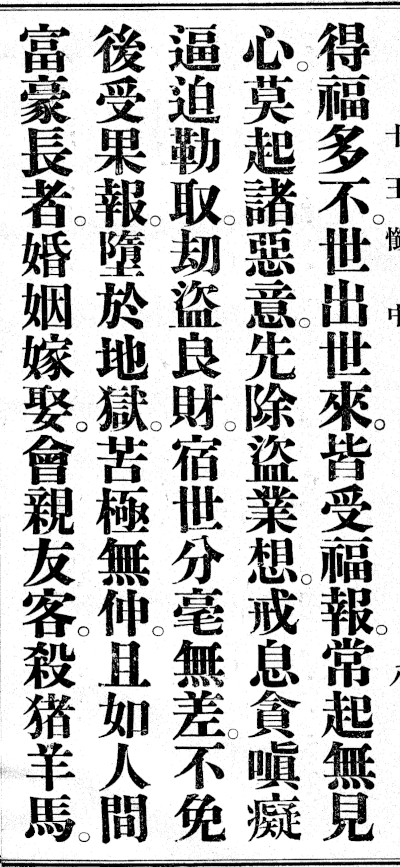 十王懺中
得福多不。世出世來。皆受福報。常起無見
心。莫起諸惡意。先除盜業想。戒息貪嗔癡
逼迫勒取。劫盜良財。宿世分毫無差。不免
後受果報。墮於地獄。苦極無伸。且如人間
富豪長者。婚姻嫁娶。會親友客。殺猪羊馬。